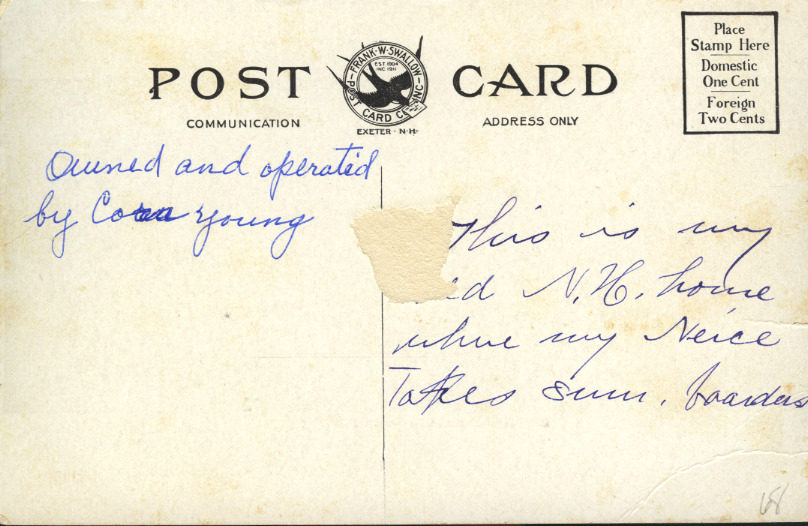 POST CARD
FRANK·W·SWALLOW
POST CARD CO INC
EST 1904
INC 1911
EXETER·N·H·
COMMUNICATION
ADDRESS ONLY
Place
Stamp Here
Domestic
One Cent
Foreign
Two Cents
Owned and operated
by Cora Young
This is my
N.H. home
where my Neice
Takes sum. boarders